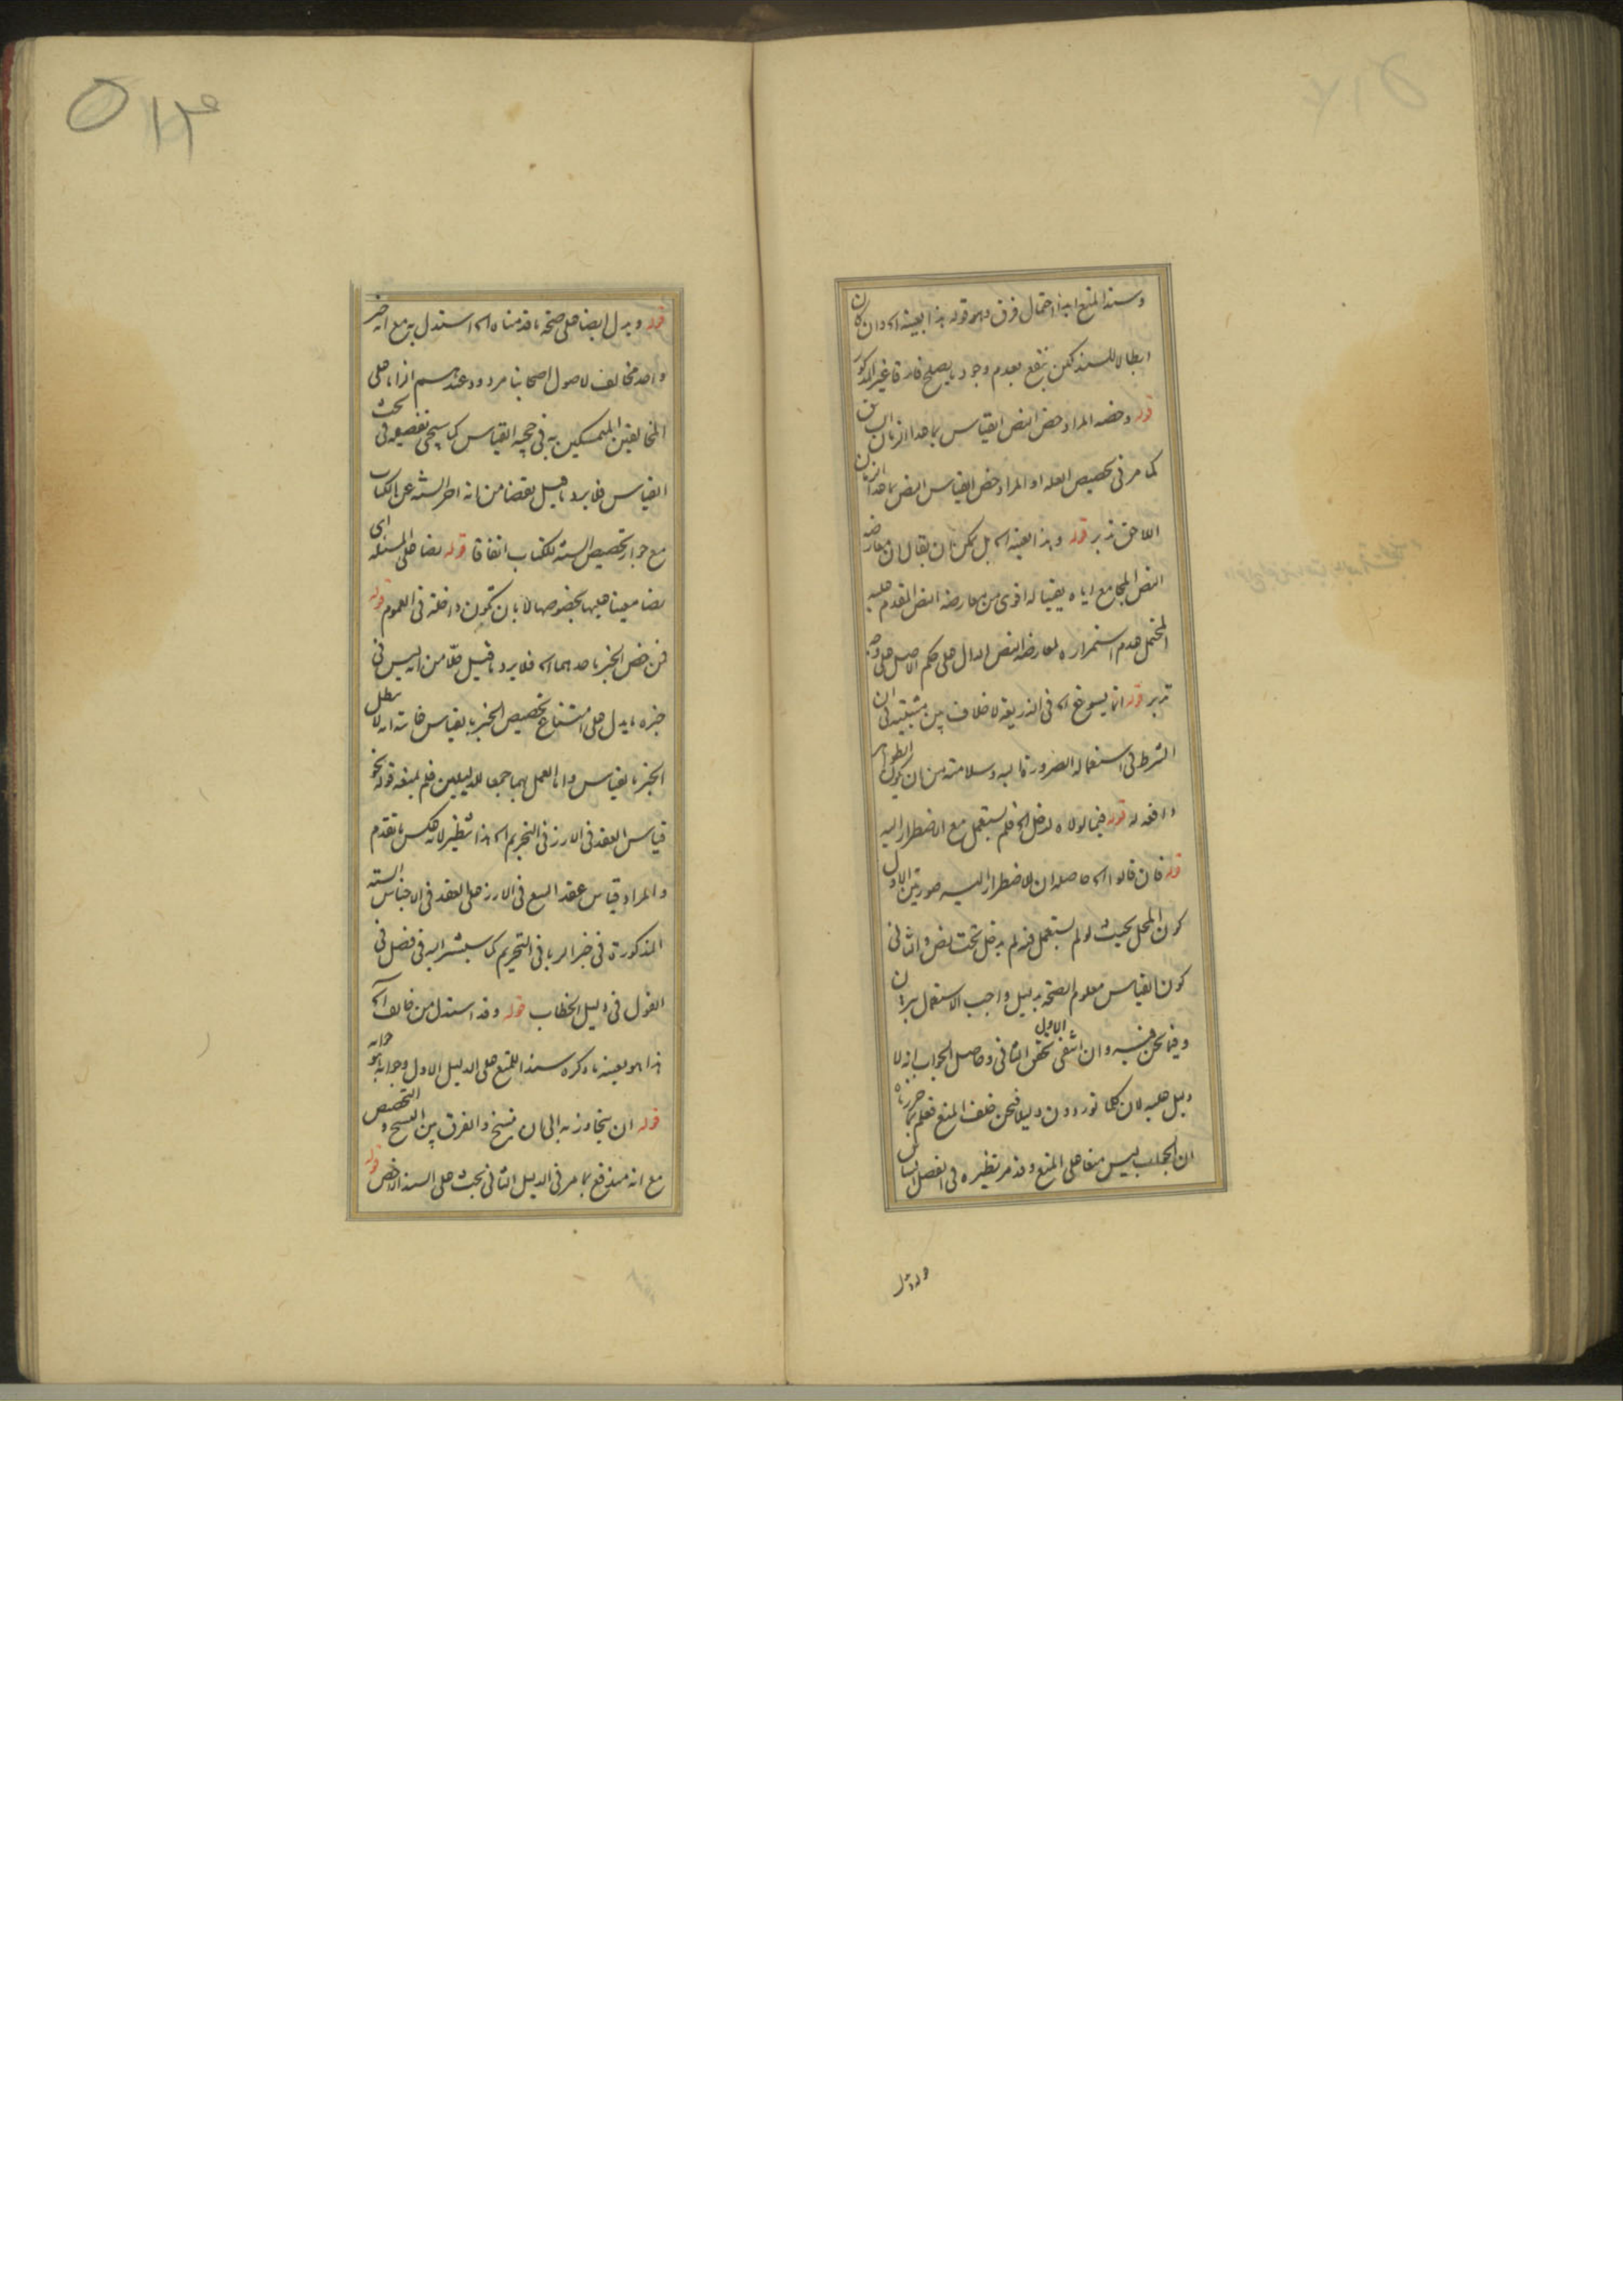 وسند المنع ابداء احتمال فرق وهو قوله هذا بعينه اه وان كان
ابطالا للسند لكن ينفع بعدم وجود ما يصلح فارقا غير المذكور
قوله وخصه المراد خص النص القياس بما عدا الزمان السابق
كما مر في تخصيص العلة او المراد خص القياس النص بما عدا الزمان
اللاحق تدبر قوله وهذا بعينه اه بل يمكن ان يقال ان معارضه
النص المجامع اياه يقينا له اقوى من معارضة النص المقدم عليه
المحتمل عدم استمراره لمعارضة النص الدال على حكم الاصل على وجه
تدبر قوله انما يسوغ اه في الذريعة لا خلاف بين مثبتيه في ان
الشرط في استعماله الضرورة اليه وسلامته من ان يكون الظواهر
دافعة له قوله فيما لولاه لدخل اه فلم يستعمل مع الاضطرار اليه
قوله فان قالوا اه حاصله ان للاضطرار اليه صورتين الاول
كون المحل بحيث لو لم يستعمل فيه لم يدخل تحت نص والثاني
كون القياس معلوم الصحة بدليل واجب الاستعمال
وفيما نحن فيه وان انتفى الاول تحقق الثاني وحاصل الجواب انه لا
دليل عليه لان كلما توردون دليلا فنحن خلف المنع فعلم بما حررناه
ان الجواب ليس منعا على المنع وقد مر نظيره في الفصل السابق
قوله ويدل ايضا على صحة ما قدمناه اه استدل به مع انه خبر
واحد مخالف لاصول اصحابنا مردود عندهم الزاما على
المخالفين المتمسكين به في حجية القياس كما سيجئ تفصيله في بحث
القياس فلا يرد ما قيل نقضا من انه اخر السنة عن الكتاب
مع جواز تخصيص السنة للكتاب اتفاقا قوله نصا على المسئلة اى
نصا معينا عليها بخصوصها لا بان تكون داخلة في العموم قوله
فمن خص الخبر باحدهما اه فلا يرد ما قيل حلا من انه ليس في
خبره ما يدل على امتناع تخصيص الخبر بالقياس غايته انه لا يبطل
الخبر بالقياس واما العمل بهما جمعا للدليلين فلم يمنعه قوله نحو
قياس العقد في الارز في التحريم اه هذا تنظير لا عكس ما تقدم
والمراد قياس عقد البيع في الارز على العقد في الاجناس الستة
المذكورة في خبر الربا في التحريم كما سيشير اليه في فصل في
القول في دليل الخطاب قوله وقد استدل من خالف اه
هذا هو بعينه ما ذكره سندا للمنع على الدليل الاول وجوابه هو جوابه
قوله ان يتجاوز به الى ان ينسخ والفرق بين النسخ والتخصيص
مع انه مندفع بما مر في الدليل الثاني بحث على السند الاخص قوله